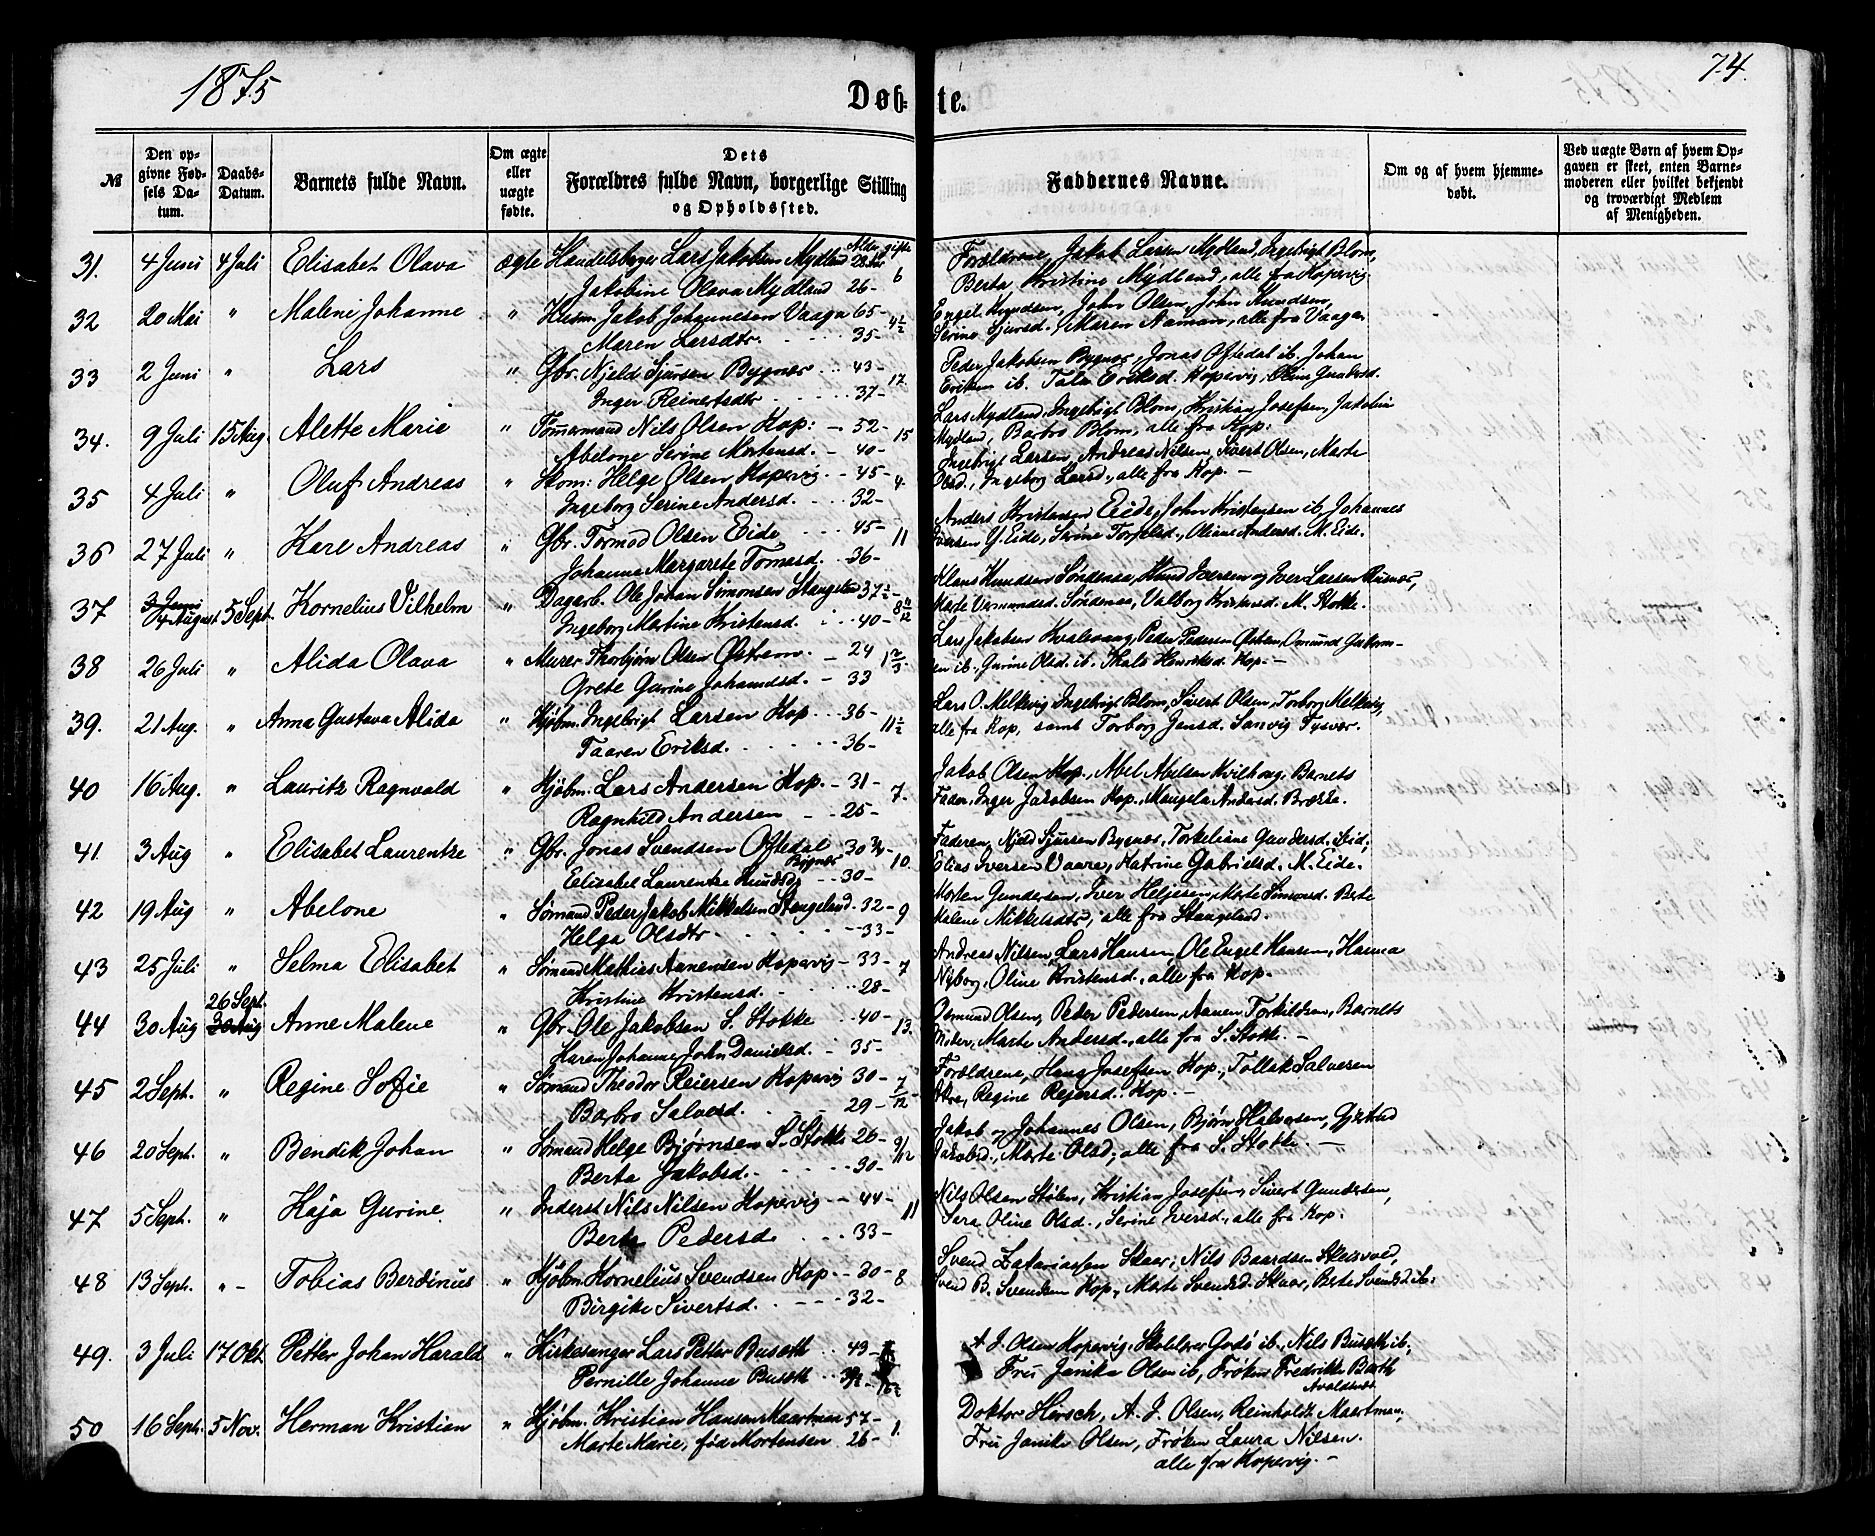 1875
Døbte.
74.
№
Den opgivne Fødsels Datum.
Daabs-Datum.
Barnets fulde Navn.
Om ægte eller uægte fødte.
Dets Forældres fulde Navn, borgerlige Stilling og Opholdssted.
Faddernes Navne.
Om og af hvem hjemmedøbt.
Ved uægte Børn af hvem Opgaven er skeet, enten Barnemoderen eller hvilket bekjendt og troværdigt Medlem af Menigheden.
Alder gifte
31. 4 Juni 4 Juli Elisabet Olava ægte Handelsborger Lars Jakobsen Mydland 28 Aar 6
Jakobine Olava Mydland 26-
Forældrene, Jakob Larsen Mydland, Ingebrigt Blom,
Berta Kristine Mydland, alle fra Kopervig
32 20 Mai " Maleni Johanne " Husm. Jakob Johannesen Vaaga 65- 4½
Maren Larsdtr. 35-
Engel Knudsen, John Olsen, John Knudsen,
Serine Sjursd., Maren Aaman, alle fra Vaaga.
33 2 Juni " Lars " Gbr. Njeld Sjursen Bygnes 43- 17
Inger Reinertsdtr 37-
Peder Jakobsen Bygnes, Jonas Oftedal ib. Johan
Eriksen ib. Talen Eriksd. Kopervig, Oline Gundersd.
34. 9 Juli 15 Aug. Alette Marie " Tømmermand Nils Olsen Kop: - 52- 15
Abelone Serine Mortensd. - 40-
Lars Mydland, Ingebrigt Blom, Kristian Josefsen, Jakobine
Mydland, Barbro Blom, alle fra Kop:
35 4 Juli " Oluf Andreas " Skom: Helge Olsen Kopervig - 45- 4.
Ingeborg Serine Andersd. 32-
Ingebrigt Larsen, Andreas Nilsen, Sivert Olsen, Marte
Olsd., Ingeborg Larsd., alle fra Kop. -
36 27 Juli " Karl Andreas " Gbr. Tormod Olsen Eide 45- 11
Johanna Margarete Tomasd. - 36-
Anders Kristensen Eide, John Kristensen ib. Johannes
Iversen Y. Eide, Serine Torfelsd., Oliane Andersd. M. Eide.
37 4 August 5 Sept. Kornelius Vilhelm " Dagarb. Ole Johan Simonsen Stangeland 37½-
Ingeborg Martine Kristensd. 40-
Klaus Knudsen Søndenaa, Knud Iversen og Iver Larsen
Marte Vermundsd. Søndenaa, Valborg Kristensd. M. Stokke.
38 26 Juli " Alida Olava " Murer Thorbjørn Olsen Østrem - 24 1⅔
Grete Gurine Johannesd. - 33
Lars Jakobsen Kvalevaag, Peder Pedersen Østrem, Osmund
ib., Gurine Olsd. ib. Henriksd. Kop. -
39. 21 Aug. " Anna Gustava Alida " Kjøbm. Ingebrigt Larsen Kop 36- 11½
Taaren Eriksd. 36-
Lars O. Melkevig, Ingebrigt Blom, Sivert Olsen, Torborg Melkevig,
alle fra Kop, samt Torborg Jensd. Sanvig Tysvær.
40 16 Aug. " Lauritz Ragnvald " Kjøbm. Lars Andersen Kop. - 31- 7.
Ragnhild Andersen 25-
Jakob Olsen Kop., Abel Abelsen Kvilhoug, Barnets
Fader, Inger Jakobsen Kop., Mangela Andersd. Brække.
41. 3 Aug " Elisabet Laurentze " Gbr. Jonas Svendsen Oftedal Bygnes 30¾- 10.
Elisabet Laurentze Knudsd. 30-
Faderen, Njeld Sjursen Bygnes, Torkeliane Gundersd. Eid,
Elias Iversen Vaare, Katrine Gabrielsd. M. Eide.
42 19 Aug " Abelone " Sømand Peder Jakob Mikkelsen Stangeland - 32- 9
Helga Olsdtr 33-
Morten Gundersen, Iver Heljesen, Marte Simonsd. Berte
Malene Mikkelsdtr, alle fra Stangeland.
43 25 Juli " Selma Elisabet " Sømand Mathias Aanensen Kopervig - 33- 7
Kristine Kristensd. 28-
Andreas Nilsen, Lars Hansen, Ole Engel Hansen, Hanna
Nyborg, Oline Kristensd., alle fra Kop.
44 30 Aug 26 Sept. 30 Aug Anne Malene " Gbr. Ole Jakobsen S. Stokke 40- 13.
Karen Johanne John Danielsd. - 35-
Osmund Olsen, Peder Pedersen, Aanen Torkildsen, Barnets
Moder, Marte Andersd., alle fra S. Stokke. -
45 2 Sept. " Regine Sofie " Sømand Theodor Reiersen Kopervig 30- 7/12
Barbro Salvesd. 29-
Forældrene, Hans Josefsen Kop., Tollak Salvesen
Regine Reiersd. Kop. -
46 20 Sept. " Bendik Johan " Sømand Helge Bjørnsen S. Stokke 26- 9/12
Berta Jakobsd. 30-
Jakob og Johannes Olsen, Bjørn Halvorsen, Gjertrud
Jakobsd., Marte Olsd., alle fra S. Stokke. -
47 5 Sept. " Kaja Gurine " Inderst Nils Nilsen Kopervig 44- 11
Berta Pedersd. 33-
Nils Olsen Stølen, Kristian Josefsen, Sivert Gundersen,
Sara Oline Olsd., Serine Iversd., alle fra Kop.
48 13 Sept. " - Tobias Berdinus " Kjøbm. Kornelius Svendsen Kop - 30- 8
Birgithe Sivertsd. 32-
Svend Zakariasen Skaar, Nils Baardsen Skeisvold,
Svend B. Svendsen Kop., Marte Svendsd. Skaar, Berte Svendsd. ib.
49. 3 Juli 17 Okt. Petter Johan Harald " Kirkesanger Lars Petter Busæth 49-
Pernille Johanne Busæth
A. J. Olsen Kopervig, Godø ib., Nils Busæth ib.,
Fru Janika Olsen ib., Frøken Fredrikke Barth
Avaldsnes
50 16 Sept. 5 Nov. Herman Kristian " Kjøbm. Kristian Hansen Maartman 57- 1.
Marte Marie, fød Mortensen 26-
Doktor Hirsch, A. J. Olsen, Reinholdt Maartman,
Fru Janike Olsen, Frøken Laura Nilsen.
alle fra Kopervig. -